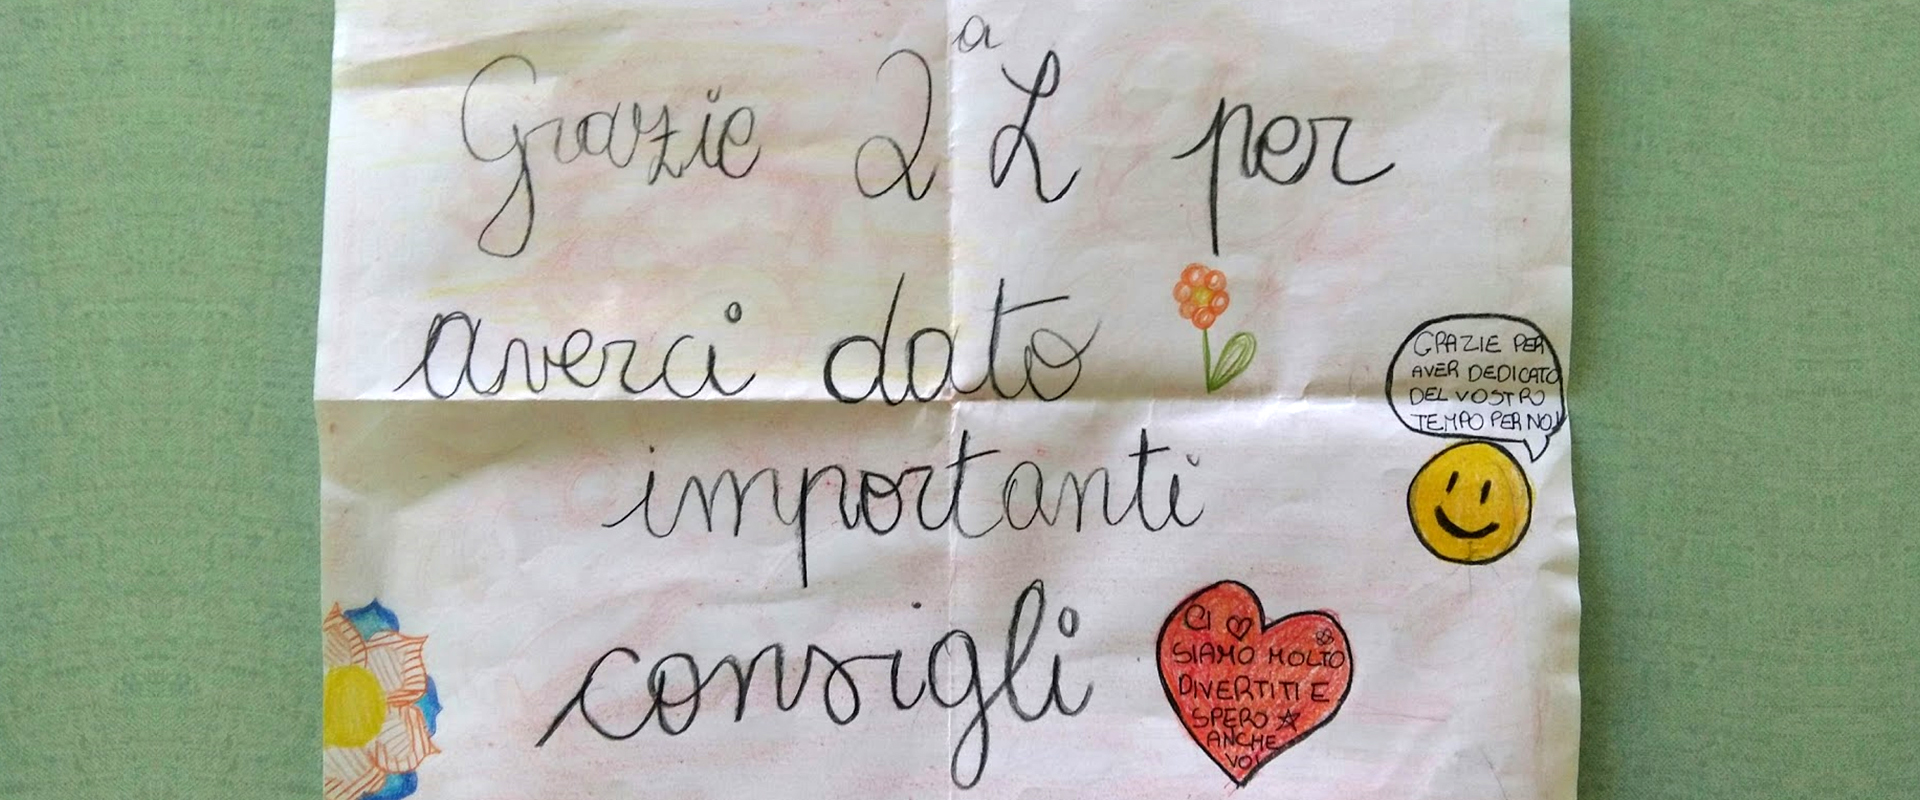 Grazie 2ª L per
averci dato
importanti
consigli
GRAZIE PER
AVER DEDICATO
DEL VOSTRO
TEMPO PER NOI
CI
SIAMO MOLTO
DIVERTITI E
SPERO
ANCHE
VOI